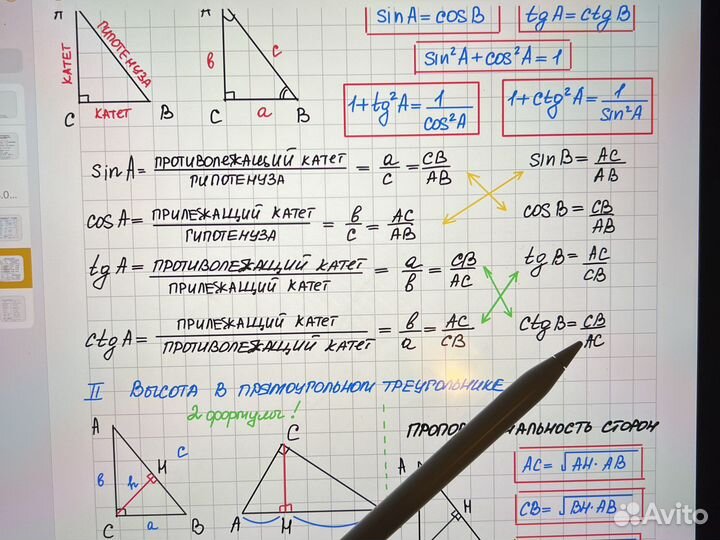 A
КАТЕТ
ГИПОТЕНУЗА
C КАТЕТ B
в c
C a B
sinA = cosB
tgA = ctgB
sin²A + cos²A = 1
1 + tg²A = 1/cos²A
1 + ctg²A = 1/sin²A
sinA = ПРОТИВОЛЕЖАЩИЙ КАТЕТ/ГИПОТЕНУЗА = a/c = CB/AB
sinB = AC/AB
cosA = ПРИЛЕЖАЩИЙ КАТЕТ/ГИПОТЕНУЗА = в/c = AC/AB
cosB = CB/AB
tgA = ПРОТИВОЛЕЖАЩИЙ КАТЕТ/ПРИЛЕЖАЩИЙ КАТЕТ = a/в = CB/AC
tgB = AC/CB
ctgA = ПРИЛЕЖАЩИЙ КАТЕТ/ПРОТИВОЛЕЖАЩИЙ КАТЕТ = в/a = AC/CB
ctgB = CB/AC
II ВЫСОТА В ПРЯМОУГОЛЬНОМ ТРЕУГОЛЬНИКЕ
2 формулы!
A
в h H c
C a B
C
A H
СТОРОН
A
H
AC = √AH·AB
CB = √BH·AB
Avito